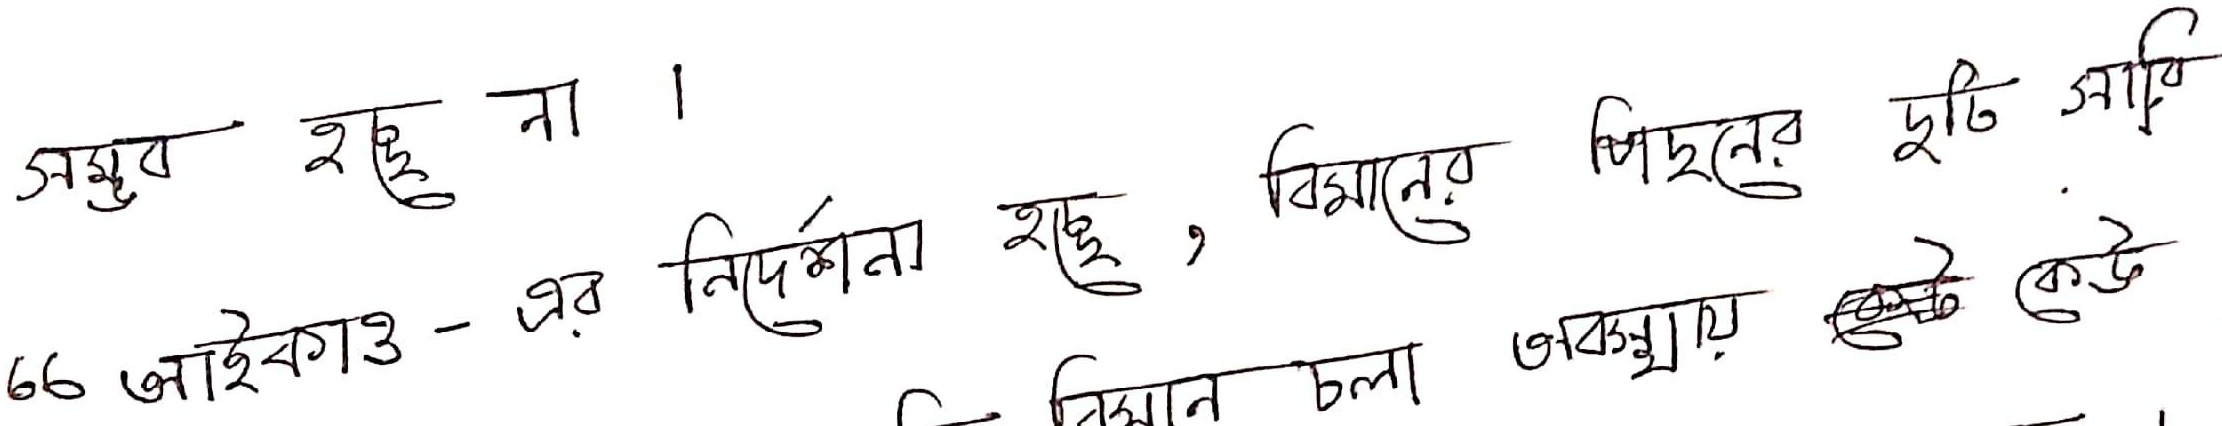 সম্ভব হচ্ছে না।
“আইকাও - এর নির্দেশনা হচ্ছে, বিমানের পিছনের দুটি সারি
বিমান চলা অবস্থায় কেউ